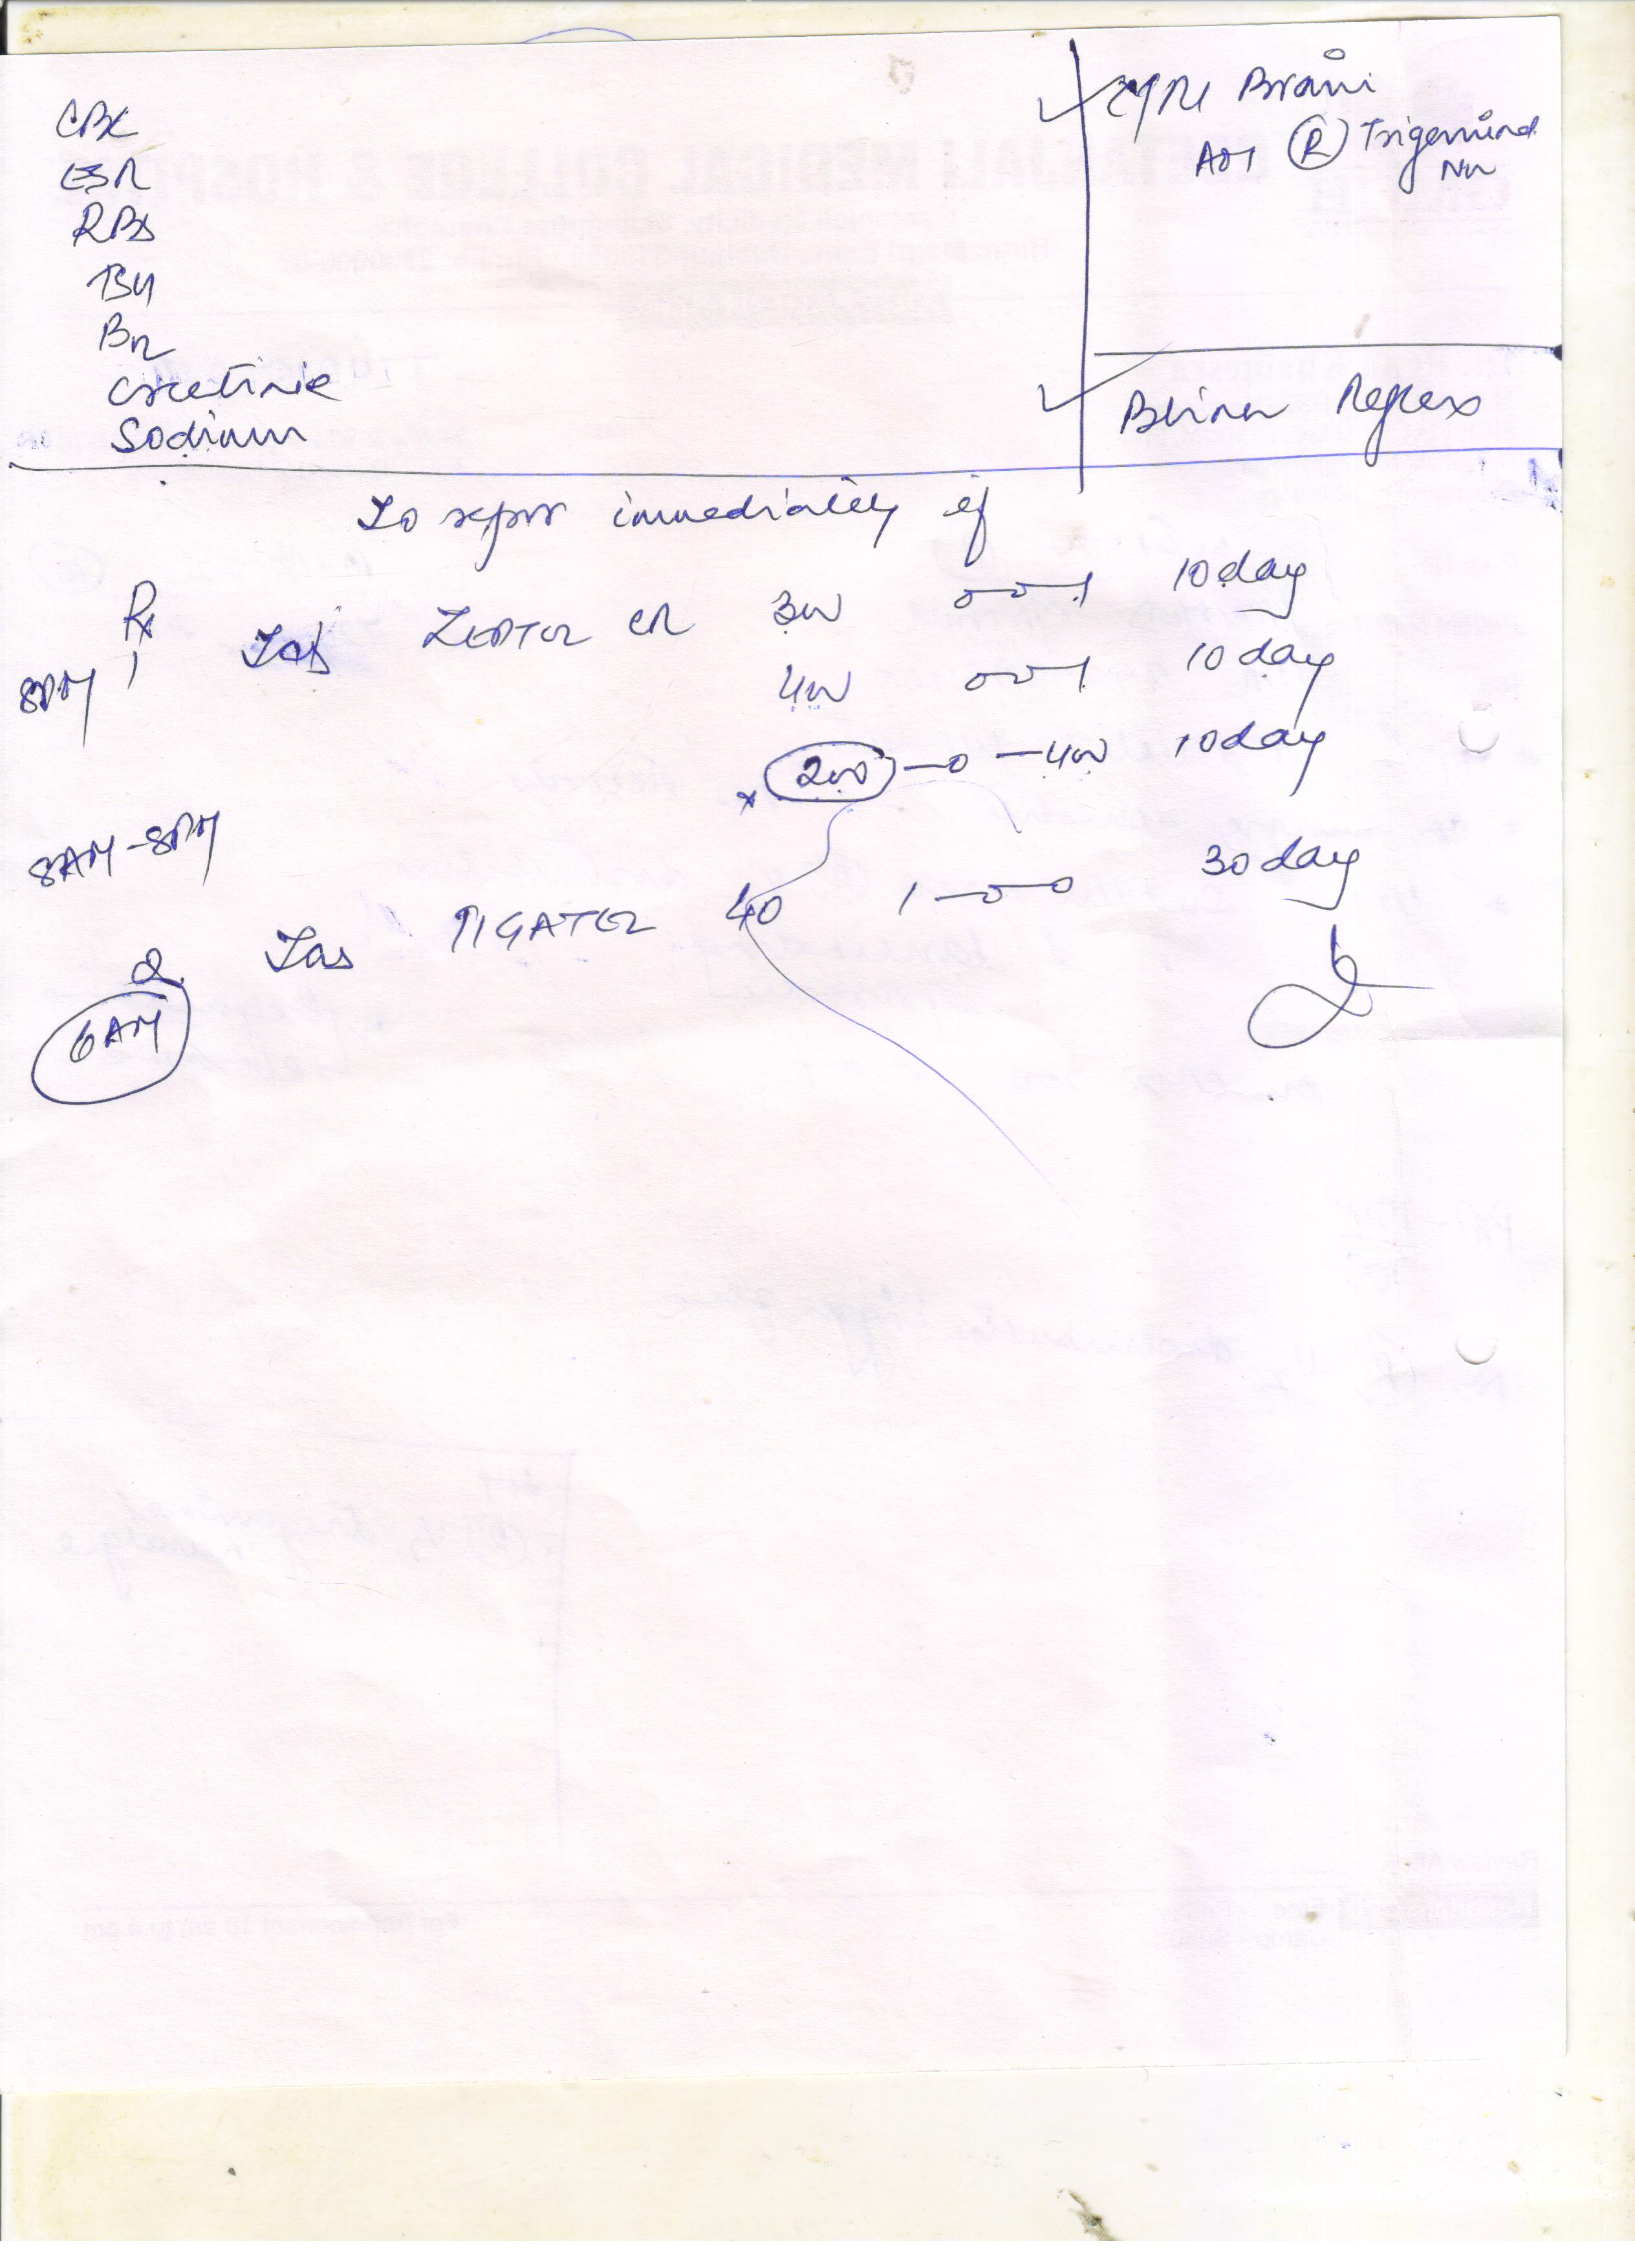 CBC
ESR
RBS
BU
B12
Creatinine
Sodium
MRI Brain
R Trigeminal
Nv
Blink Reflex
To report immediately if
Rx
8PM 1 Tab ZEPTOL CR 300 0-0-1 10 day
400 0-0-1 10 day
x 200 -0-400 10 day
8AM-8PM
2. Tab 40 1-0-0 30 day
6AM